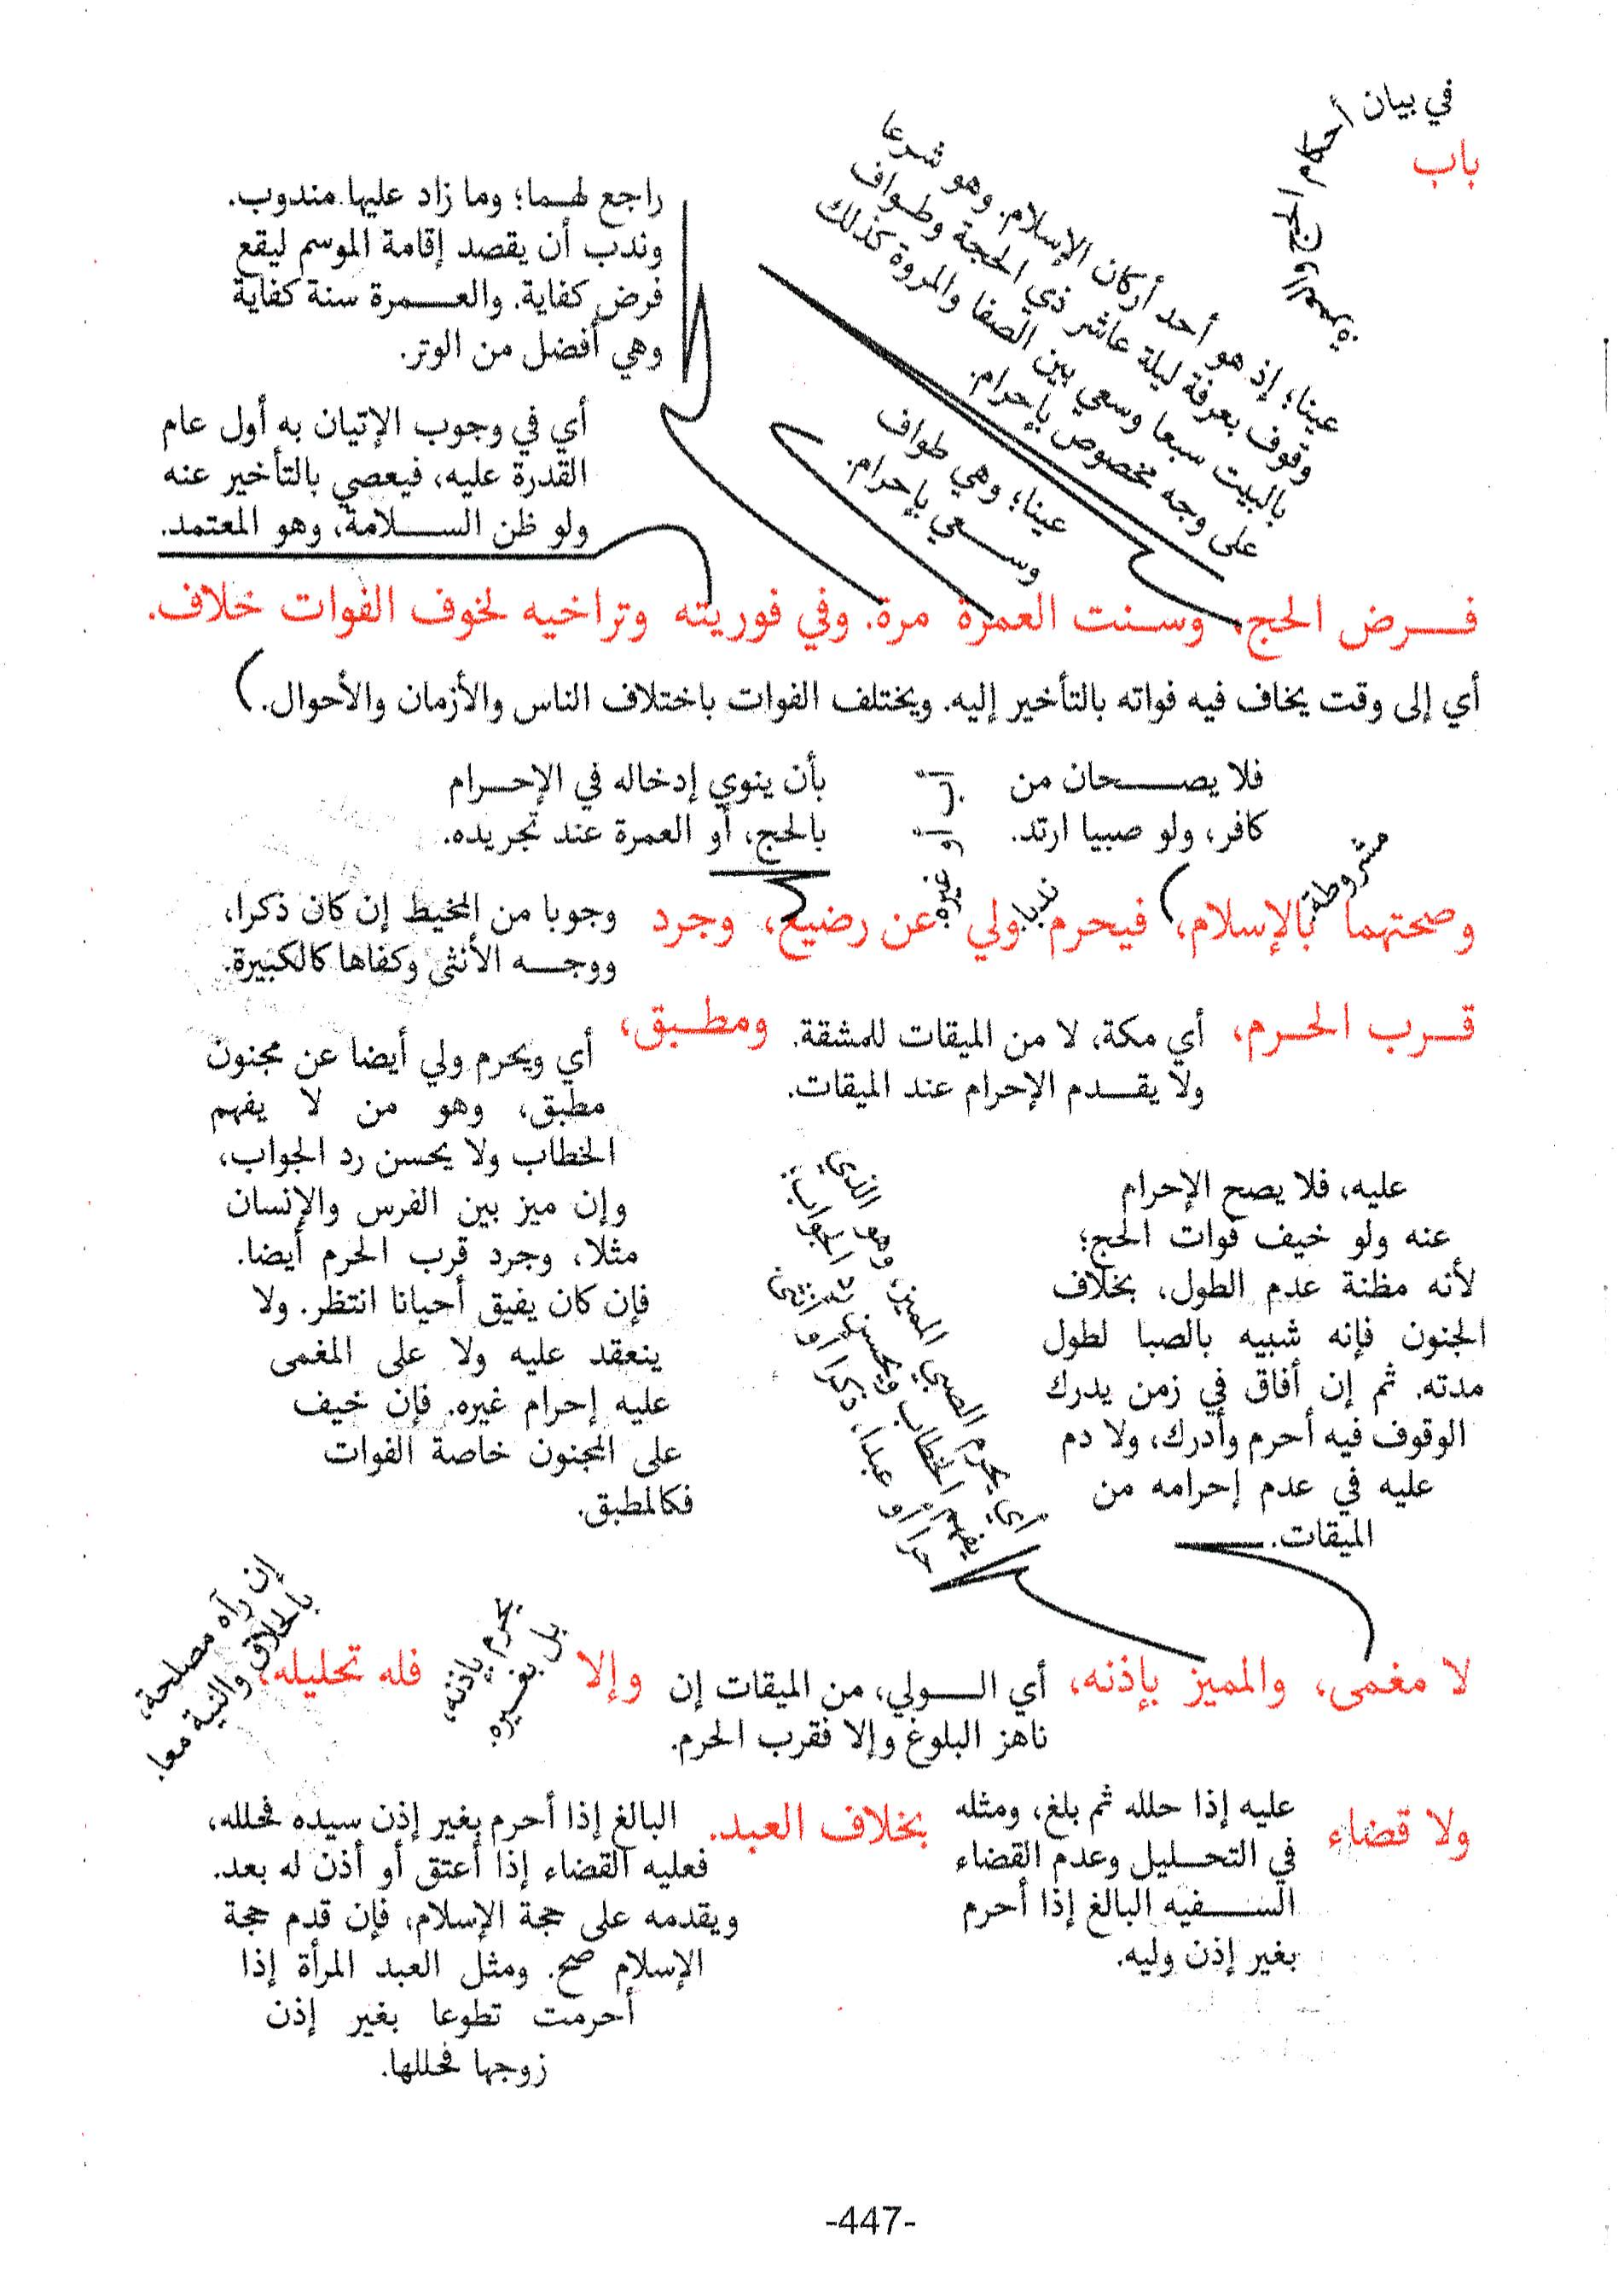 باب
في بيان أحكام الحج والعمرة.
عينا؛ إذ هو أحد أركان الإسلام. وهو شرعا
وقوف بعرفة ليلة عاشر ذي الحجة وطواف
بالبيت سبعا وسعي بين الصفا والمروة كذلك
على وجه مخصوص بإحرام.
عينا؛ وهي طواف
وسعي بإحرام.
راجع لهما؛ وما زاد عليها مندوب.
وندب أن يقصد إقامة الموسم ليقع
فرض كفاية. والعمرة سنة كفاية
وهي أفضل من الوتر.
أي في وجوب الإتيان به أول عام
القدرة عليه، فيعصي بالتأخير عنه
ولو ظن السلامة، وهو المعتمد.
فرض الحج، وسنت العمرة مرة. وفي فوريته وتراخيه لخوف الفوات خلاف.
أي إلى وقت يخاف فيه فواته بالتأخير إليه. ويختلف الفوات باختلاف الناس والأزمان والأحوال.
مشروطة
فلا يصحان من
كافر، ولو صبيا ارتد.
ندبا
أب أو غيره
بأن ينوي إدخاله في الإحرام
بالحج، أو العمرة عند تجريده.
وصحتهما بالإسلام، فيحرم ولي عن رضيع، وجرد
وجوبا من المخيط إن كان ذكرا،
ووجه الأنثى وكفاها كالكبيرة.
قرب الحرم،
أي مكة، لا من الميقات للمشقة.
ولا يقدم الإحرام عند الميقات.
ومطبق،
أي ويحرم ولي أيضا عن مجنون
مطبق، وهو من لا يفهم
الخطاب ولا يحسن رد الجواب،
وإن ميز بين الفرس والإنسان
مثلا، وجرد قرب الحرم أيضا.
فإن كان يفيق أحيانا انتظر. ولا
ينعقد عليه ولا على المغمى
عليه إحرام غيره. فإن خيف
على المجنون خاصة الفوات
فكالمطبق.
عليه، فلا يصح الإحرام
عنه ولو خيف فوات الحج؛
لأنه مظنة عدم الطول، بخلاف
الجنون فإنه شبيه بالصبا لطول
مدته. ثم إن أفاق في زمن يدرك
الوقوف فيه أحرم وأدرك، ولا دم
عليه في عدم إحرامه من
الميقات.
أي يحرم الصبي المميز، وهو الذي
يفهم الخطاب ويحسن رد الجواب؛
حرا أو عبدا، ذكرا أو أنثى
لا مغمى، والمميز بإذنه،
أي الولي، من الميقات إن
ناهز البلوغ وإلا فقرب الحرم.
وإلا
يحرم بإذنه،
بل بغيره.
فله تحليله،
إن رآه مصلحة،
بالحلاق والنية معا.
ولا قضاء
عليه إذا حلله ثم بلغ، ومثله
في التحليل وعدم القضاء
السفيه البالغ إذا أحرم
بغير إذن وليه.
بخلاف العبد.
البالغ إذا أحرم بغير إذن سيده فحلله،
فعليه القضاء إذا أعتق أو أذن له بعد.
ويقدمه على حجة الإسلام، فإن قدم حجة
الإسلام صح. ومثل العبد المرأة إذا
أحرمت تطوعا بغير إذن
زوجها فحللها.
-447-